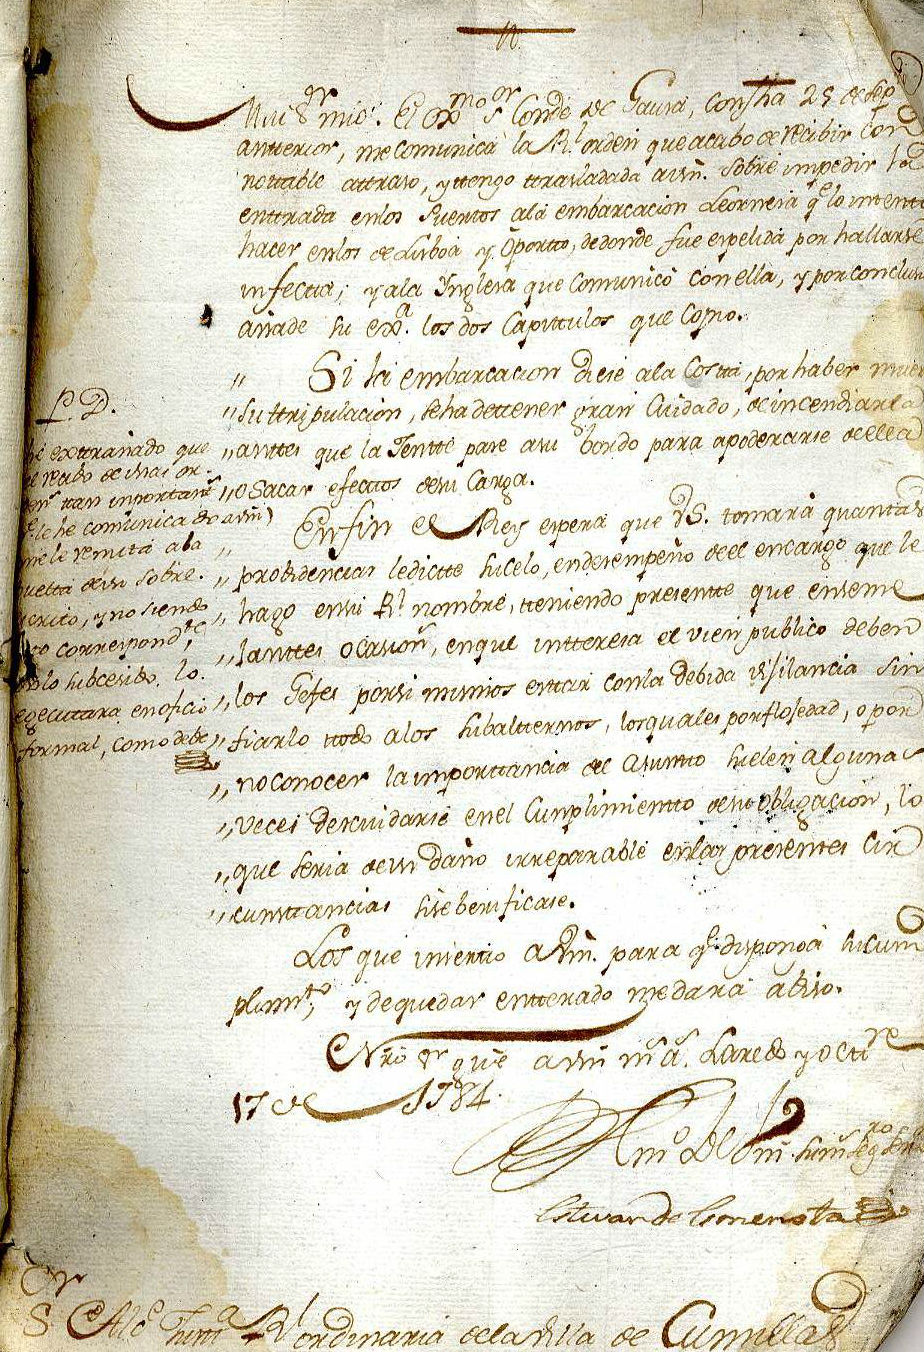 Mui Sr mio. El Exmo Sr Conde de Gausa, con fha 25 de Sep
antterior, me comunica la Rl orden que acabo de recibir con
nottable attraso, y ttengo ttrasladada a vm. sobre impedir la
enttrada en los Puertos a la embarcacion qe lo intentó
hacer en los de Lisboa y Oportto, de donde fue expelida por hallarse
infecta; y a la Ynglesa que comunicó con ella, y por conclus
añade su exa. los dos Capittulos que Copio.
" Si la embarcacion diese a la Costa, por haber muer
" su ttripulacion, se ha de ttener gran Cuidado, de incendiarla
" anttes que la Jentte pase a su bordo para apoderarse de ella
" o Sacar efecttos de su Carga.
" En fin el Rey espera que VS. tomará quantas
" probidencias le dictte su celo, en desempeño de el encargo que le
" hago en su Rl nombre, tteniendo presentte que en seme
" janttes ocasions, en que intteresa el vien publico deben
" los Gefes por si mismos esttar con la debida vijilancia sin
" fiarlo ttodo a los subaltternos, los quales por flojedad, o por
" no conocer la importtancia del asuntto suelen algunas
" veces descuidarse en el Cumplimientto de su obligacion, lo
" que seria de un daño irreparable en las presentes cir
" cunsttancias si se berificase.
Los que insertto a Vm. para qe disponga su cum
plimto, y de quedar entterado me dará abiso.
Nro Sr gue a vm ms as. Laredo y Octre
17 de 1784.
su ms segro
P. D.
he exttrañado que
el recibo de esas or
dens tan importans
qe le he comunicado a vm
me le remita a la
buelta de su sobre
scrito, y no siendo
correspondte
lo subcesibo lo
egecutara en oficio
formal, como debe
Sr Alce Justa Rl ordinaria de la Villa de Comillas